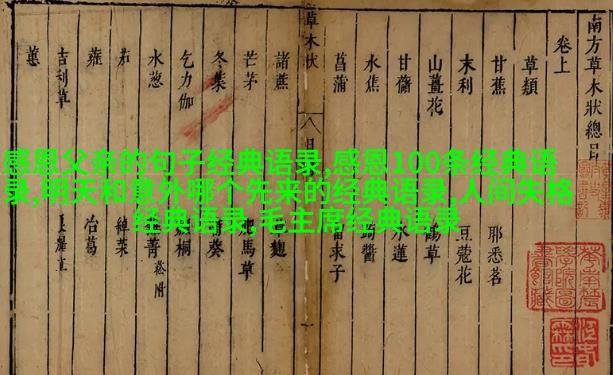 感恩父亲的句子经典语录,感恩100条经典语
录,明天和意外哪个先来的经典语录,人间失格
经典语录,毛主席经典语录
南方草木狀總目
卷上
草類
甘蕉 耶悉茗
末利 豆蔻花
山薑花 草
甘藷 水蓮
水蕉 蒟醬
菖蒲 留求子
草木狀
諸蔗 麴
芒茅 馬草
冬葉 葵
乞力伽 桐
水葱 菁
茄 綽菜
蕹 冶葛
吉利草
蕙